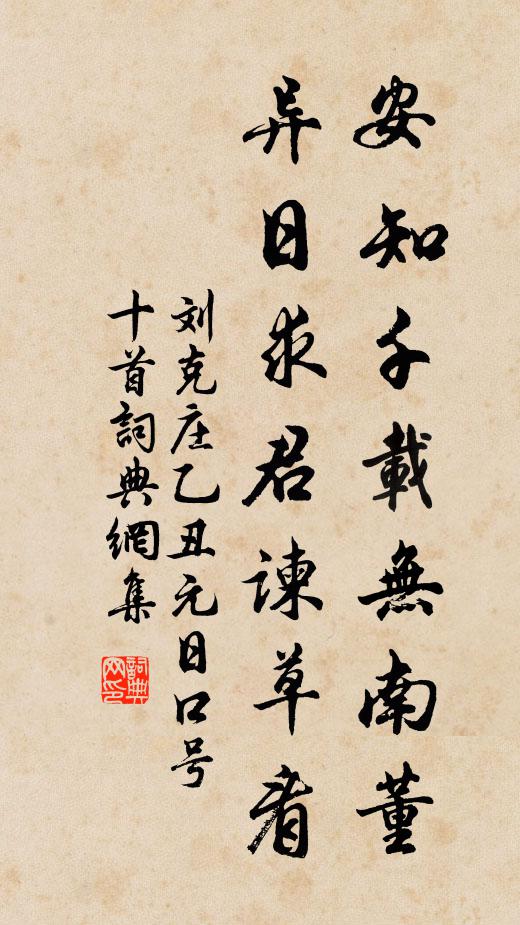 安知千載無南董
异日求君諫草看
刘克庄乙丑元日口号
十首詞典網集
詞典
网印